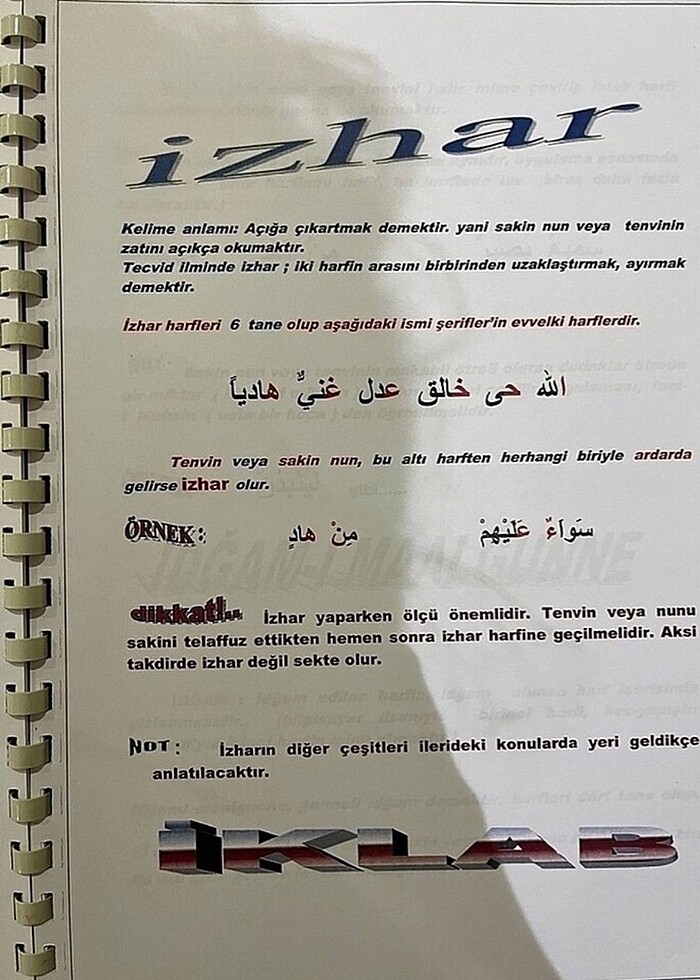 izhar
Kelime anlamı: Açığa çıkartmak demektir. yani sakin nun veya tenvinin
zatını açıkça okumaktır.
Tecvid ilminde izhar ; iki harfin arasını birbirinden uzaklaştırmak, ayırmak
demektir.
İzhar harfleri 6 tane olup aşağıdaki ismi şerifler'in evvelki harflerdir.
الله حى خالق عدل غنيٌّ هادياً
Tenvin veya sakin nun, bu altı harften herhangi biriyle ardarda
gelirse izhar olur.
ÖRNEK: مِنْ هَادٍ سَوَاءٌ عَلَيْهِمْ
dikkat!.. İzhar yaparken ölçü önemlidir. Tenvin veya nunu
sakini telaffuz ettikten hemen sonra izhar harfine geçilmelidir. Aksi
takdirde izhar değil sekte olur.
NOT: İzharın diğer çeşitleri ilerideki konularda yeri geldikçe
anlatılacaktır.
İKLAB